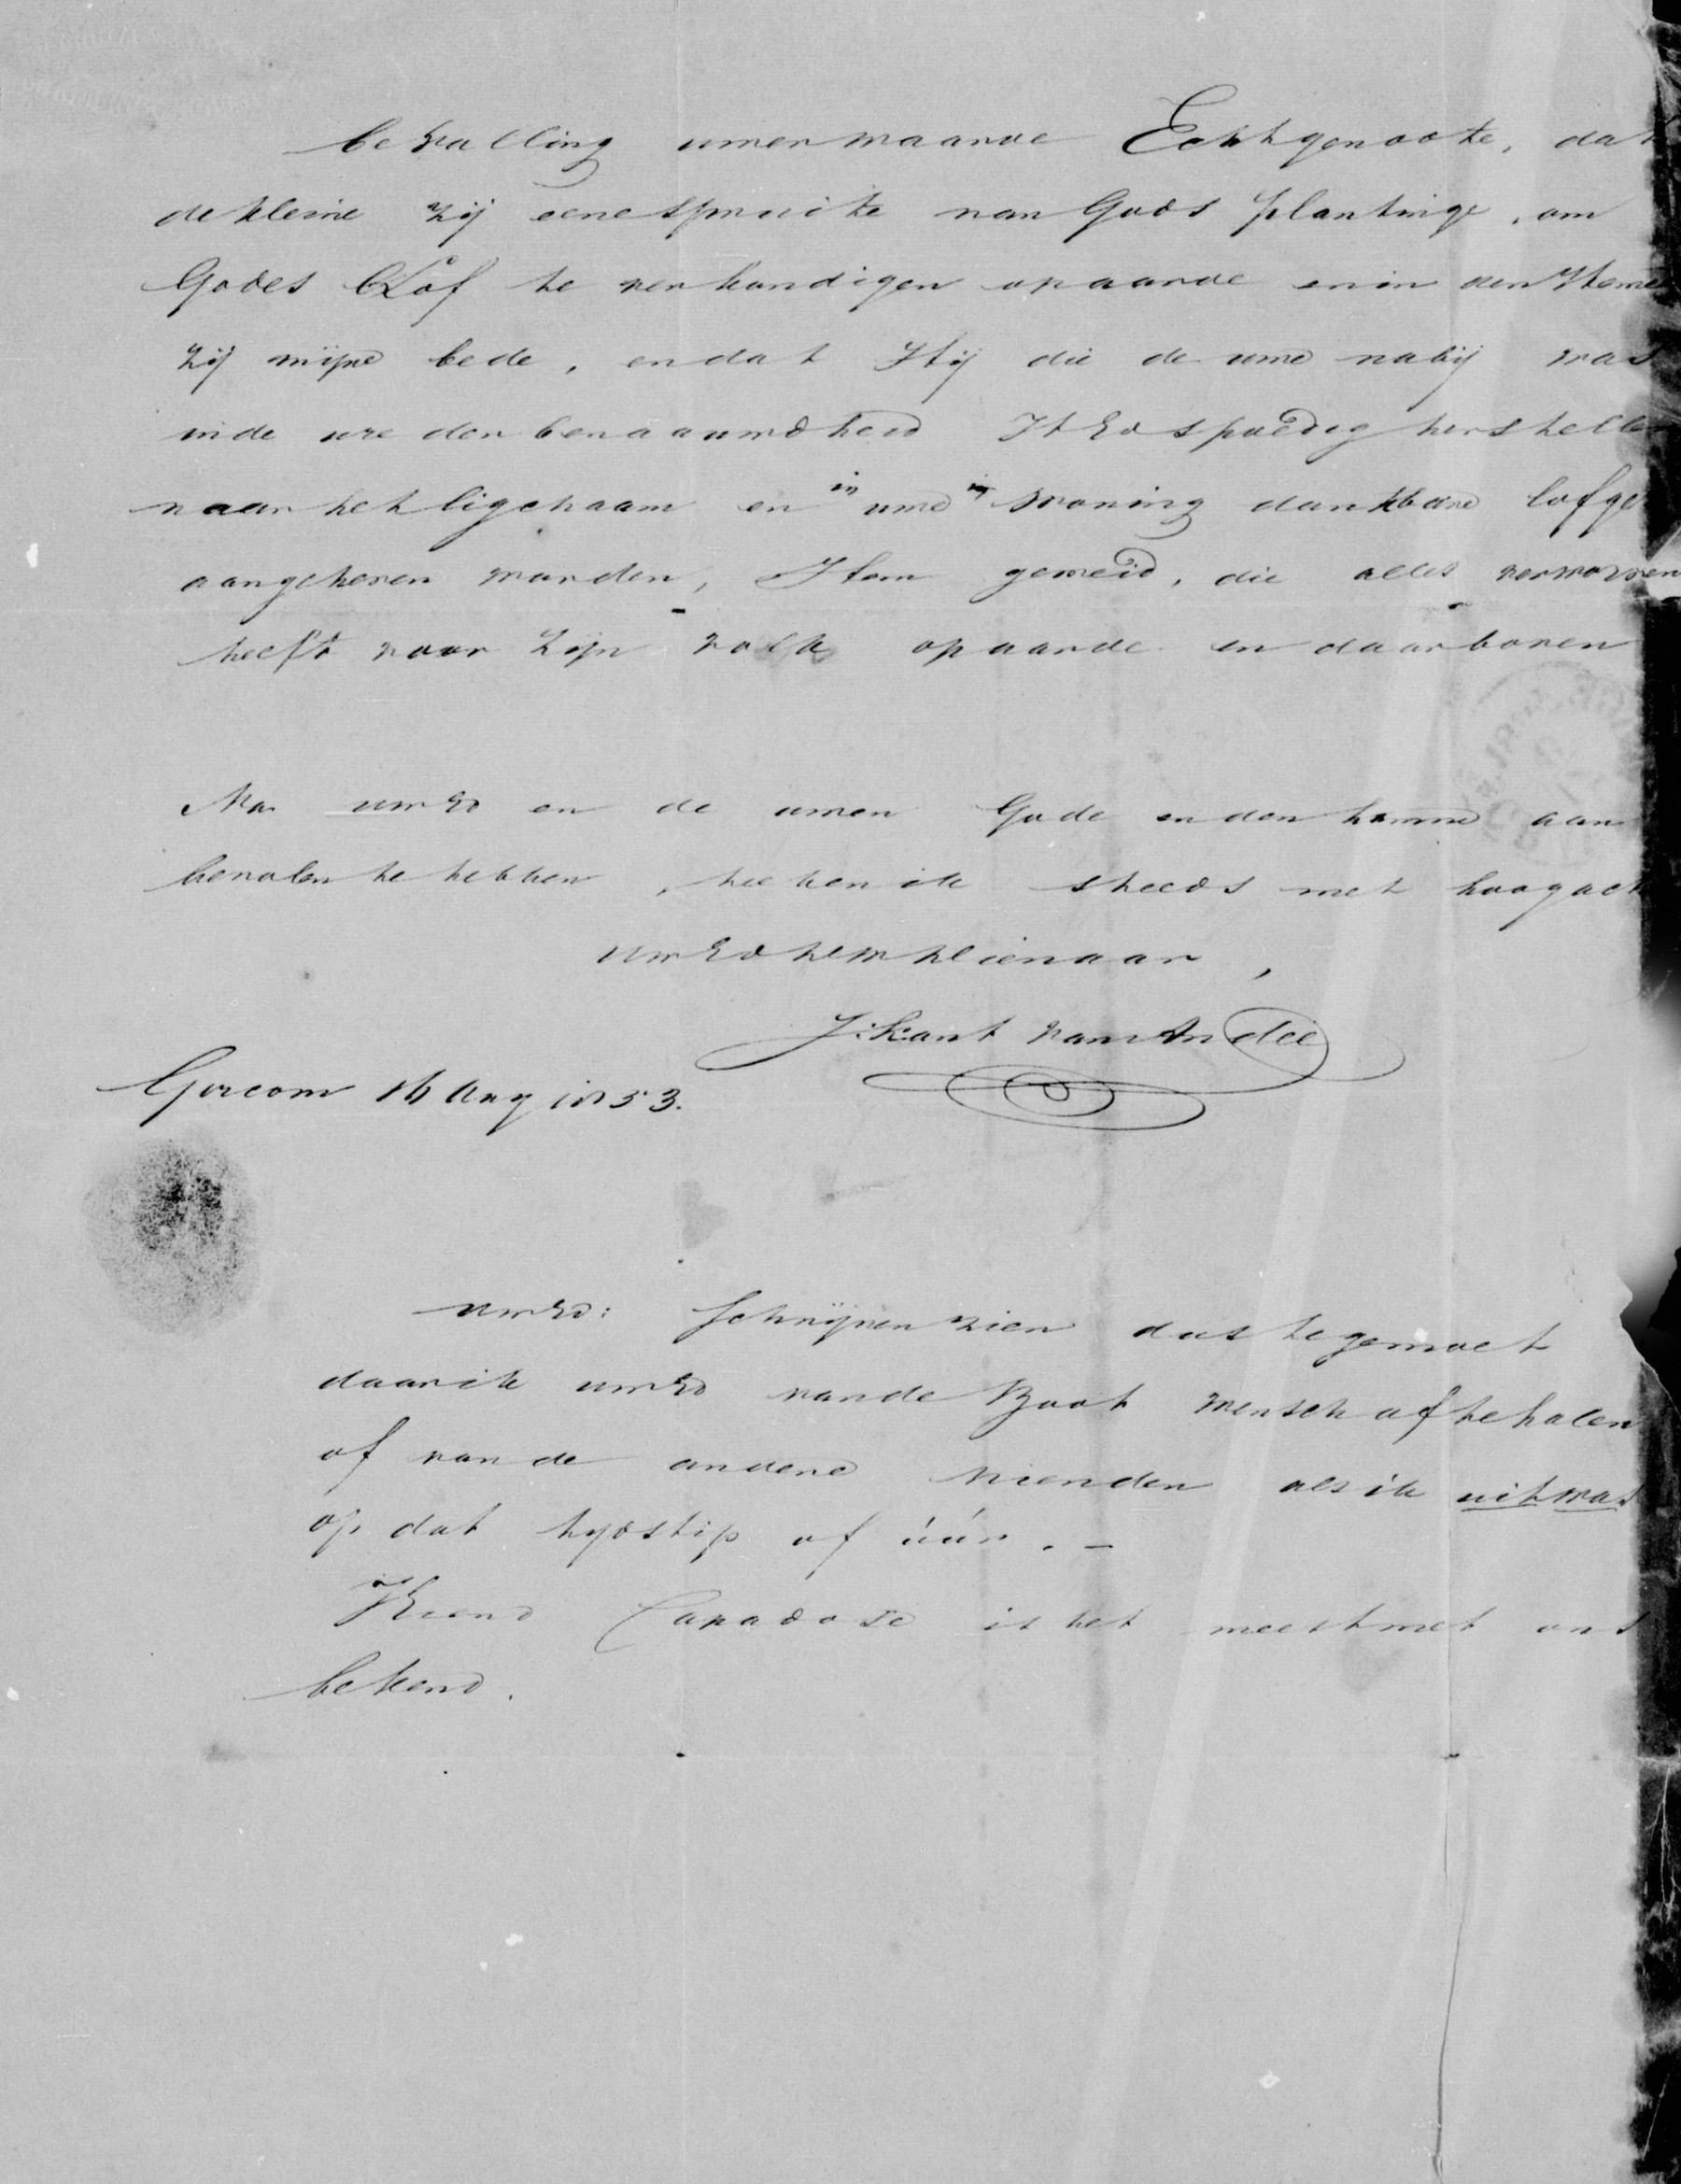 bevalling uwer waarde Echtgenoote, dat
de kleine zij eene spruite van Gods plantinge, om
Godes Lof te verkondigen op aarde en in den Heme
zij mijne bede, en dat Hij die de uwe nabij was
in de ure der benaauwdheid HEd spoedig herstelle
naar het ligchaam en in uwe woning dankbare lofge
aangeheven worden, Hem geweid, die alles verworven
heeft voor zijn volk op aarde en daarboven
Na UwEd en de uwen Gode en den
bevolen te hebben, teeken ik steeds met hoogach
UwEd
J: Kant van Andel
Gorcom 16 Aug 1853.
UwEd: Schrijven zien dus tegemoet
daar ik UwEd van de Boot wensch af te halen
of van de andere vrienden als ik uit was
op dat tydstip of úúr. –
Vriend Capadose is het meest met ons
bekend.